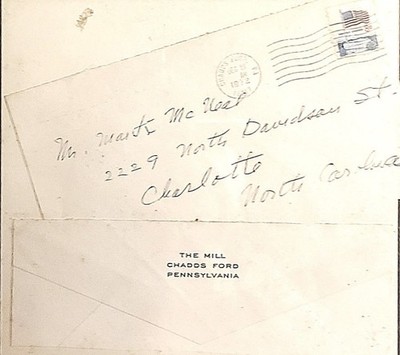 CHADDS FORD PA
Mr. Martin McNeal
2229 North Davidson St.
Charlotte
North Carolina
THE MILL
CHADDS FORD
PENNSYLVANIA